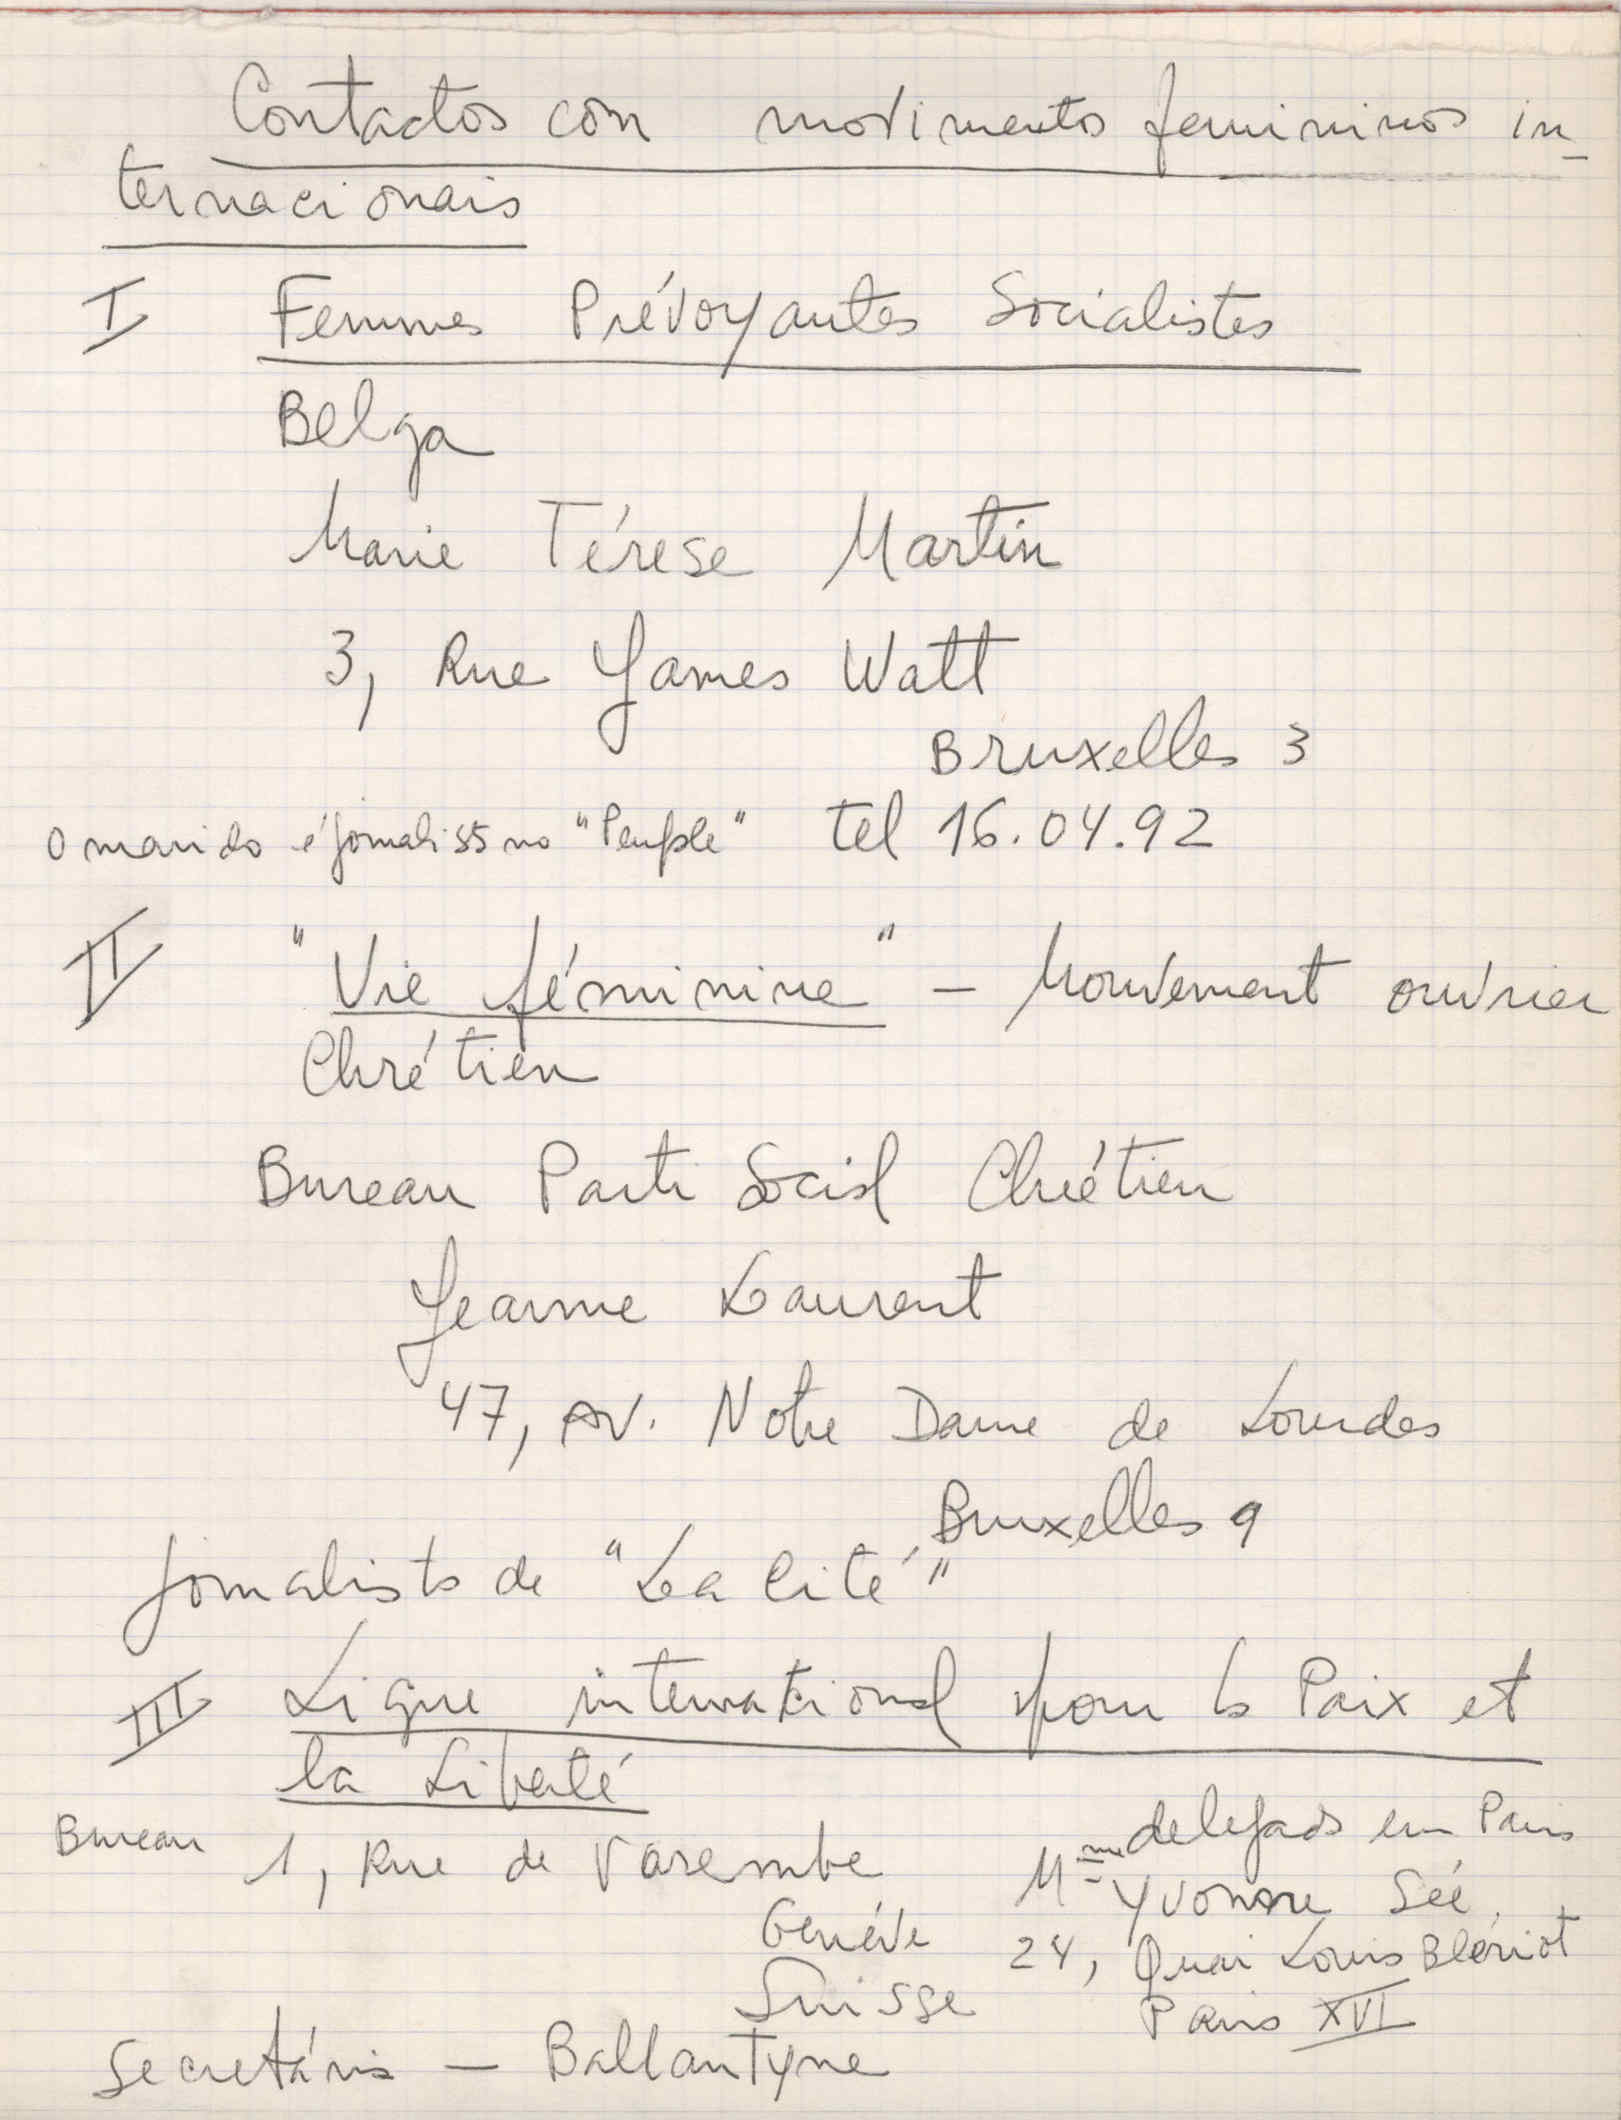 Contactos com movimentos femininos in-
ternacionais
I Femmes Prévoyantes Socialistes
Belga
Marie Térese Martin
3, Rue James Watt
Bruxelles 3
O marido é jornalista no "Peuple" tel 16.04.92
II "Vie féminine" - Mouvement ouvrier
Chrétien
Bureau Parti Social Chrétien
Jeanne Laurent
47, Av. Notre Dame de Lourdes
Bruxelles 9
jornalista de "La Cité"
III Ligue international pour la Paix et
la Liberté
Bureau 1, Rue de Varembe
Genéve
Suisse
delegada em Paris
Mme Yvonne Sée
24, Quai Louis Blériot
Paris XVI
Secretária - Ballantyne